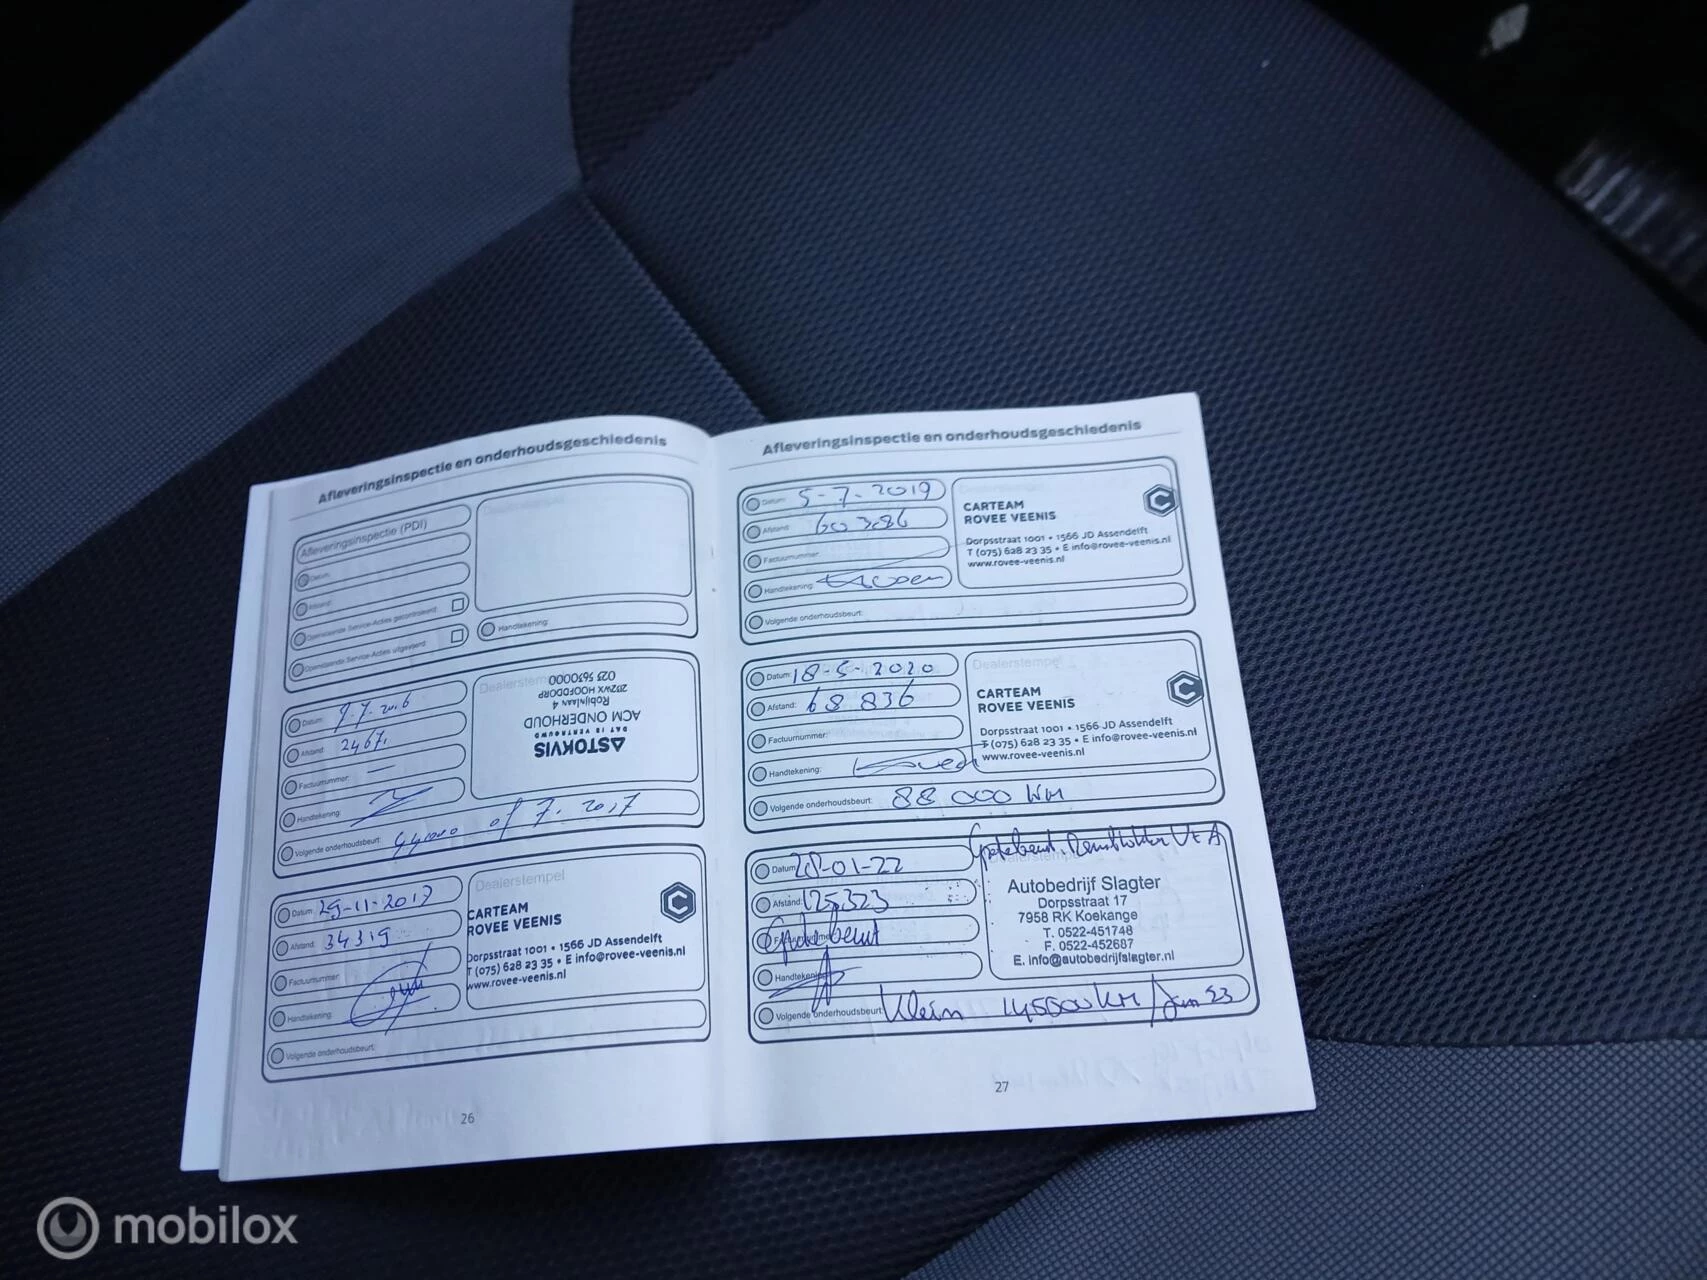 Afleveringsinspectie en onderhoudsgeschiedenis
Afleveringsinspectie (PDI)
Datum:
Afstand:
Openstaande Service-Acties gecontroleerd:
Openstaande Service-Acties uitgevoerd:
Dealerstempel
Handtekening:
Datum: 9.7.2016
Afstand: 2467.
Factuurnummer: —
Handtekening:
Volgende onderhoudsbeurt: of 7. 2017
Dealerstempel
ASTOKVIS
DAT IS VERTROUWD
ACM ONDERHOUD
Robijnlaan 4
2132WX HOOFDDORP
023 5650000
Datum: 29-11-2017
Afstand: 34319
Factuurnummer:
Handtekening:
Volgende onderhoudsbeurt:
Dealerstempel
CARTEAM
ROVEE VEENIS
Dorpsstraat 1001 • 1566 JD Assendelft
T (075) 628 23 35 • E info@rovee-veenis.nl
www.rovee-veenis.nl
26
Afleveringsinspectie en onderhoudsgeschiedenis
Datum: 5-7-2019
Afstand: 60386
Factuurnummer:
Handtekening:
Volgende onderhoudsbeurt:
CARTEAM
ROVEE VEENIS
Dorpsstraat 1001 • 1566 JD Assendelft
T (075) 628 23 35 • E info@rovee-veenis.nl
www.rovee-veenis.nl
Datum: 18-5-2020
Afstand: 68836
Factuurnummer:
Handtekening:
Volgende onderhoudsbeurt: 88 000 KM
Dealerstempel
CARTEAM
ROVEE VEENIS
Dorpsstraat 1001 • 1566 JD Assendelft
T (075) 628 23 35 • E info@rovee-veenis.nl
www.rovee-veenis.nl
Datum: 28-01-22
Afstand: 125323
Factuurnummer: Grotebeurt
Handtekening:
Volgende onderhoudsbeurt: Klein 145000 KM / Jan 23
Grotebeurt. Remblokken V+A
Dealerstempel
Autobedrijf Slagter
Dorpsstraat 17
7958 RK Koekange
T. 0522-451748
F. 0522-452687
E. info@autobedrijfslagter.nl
27
mobilox